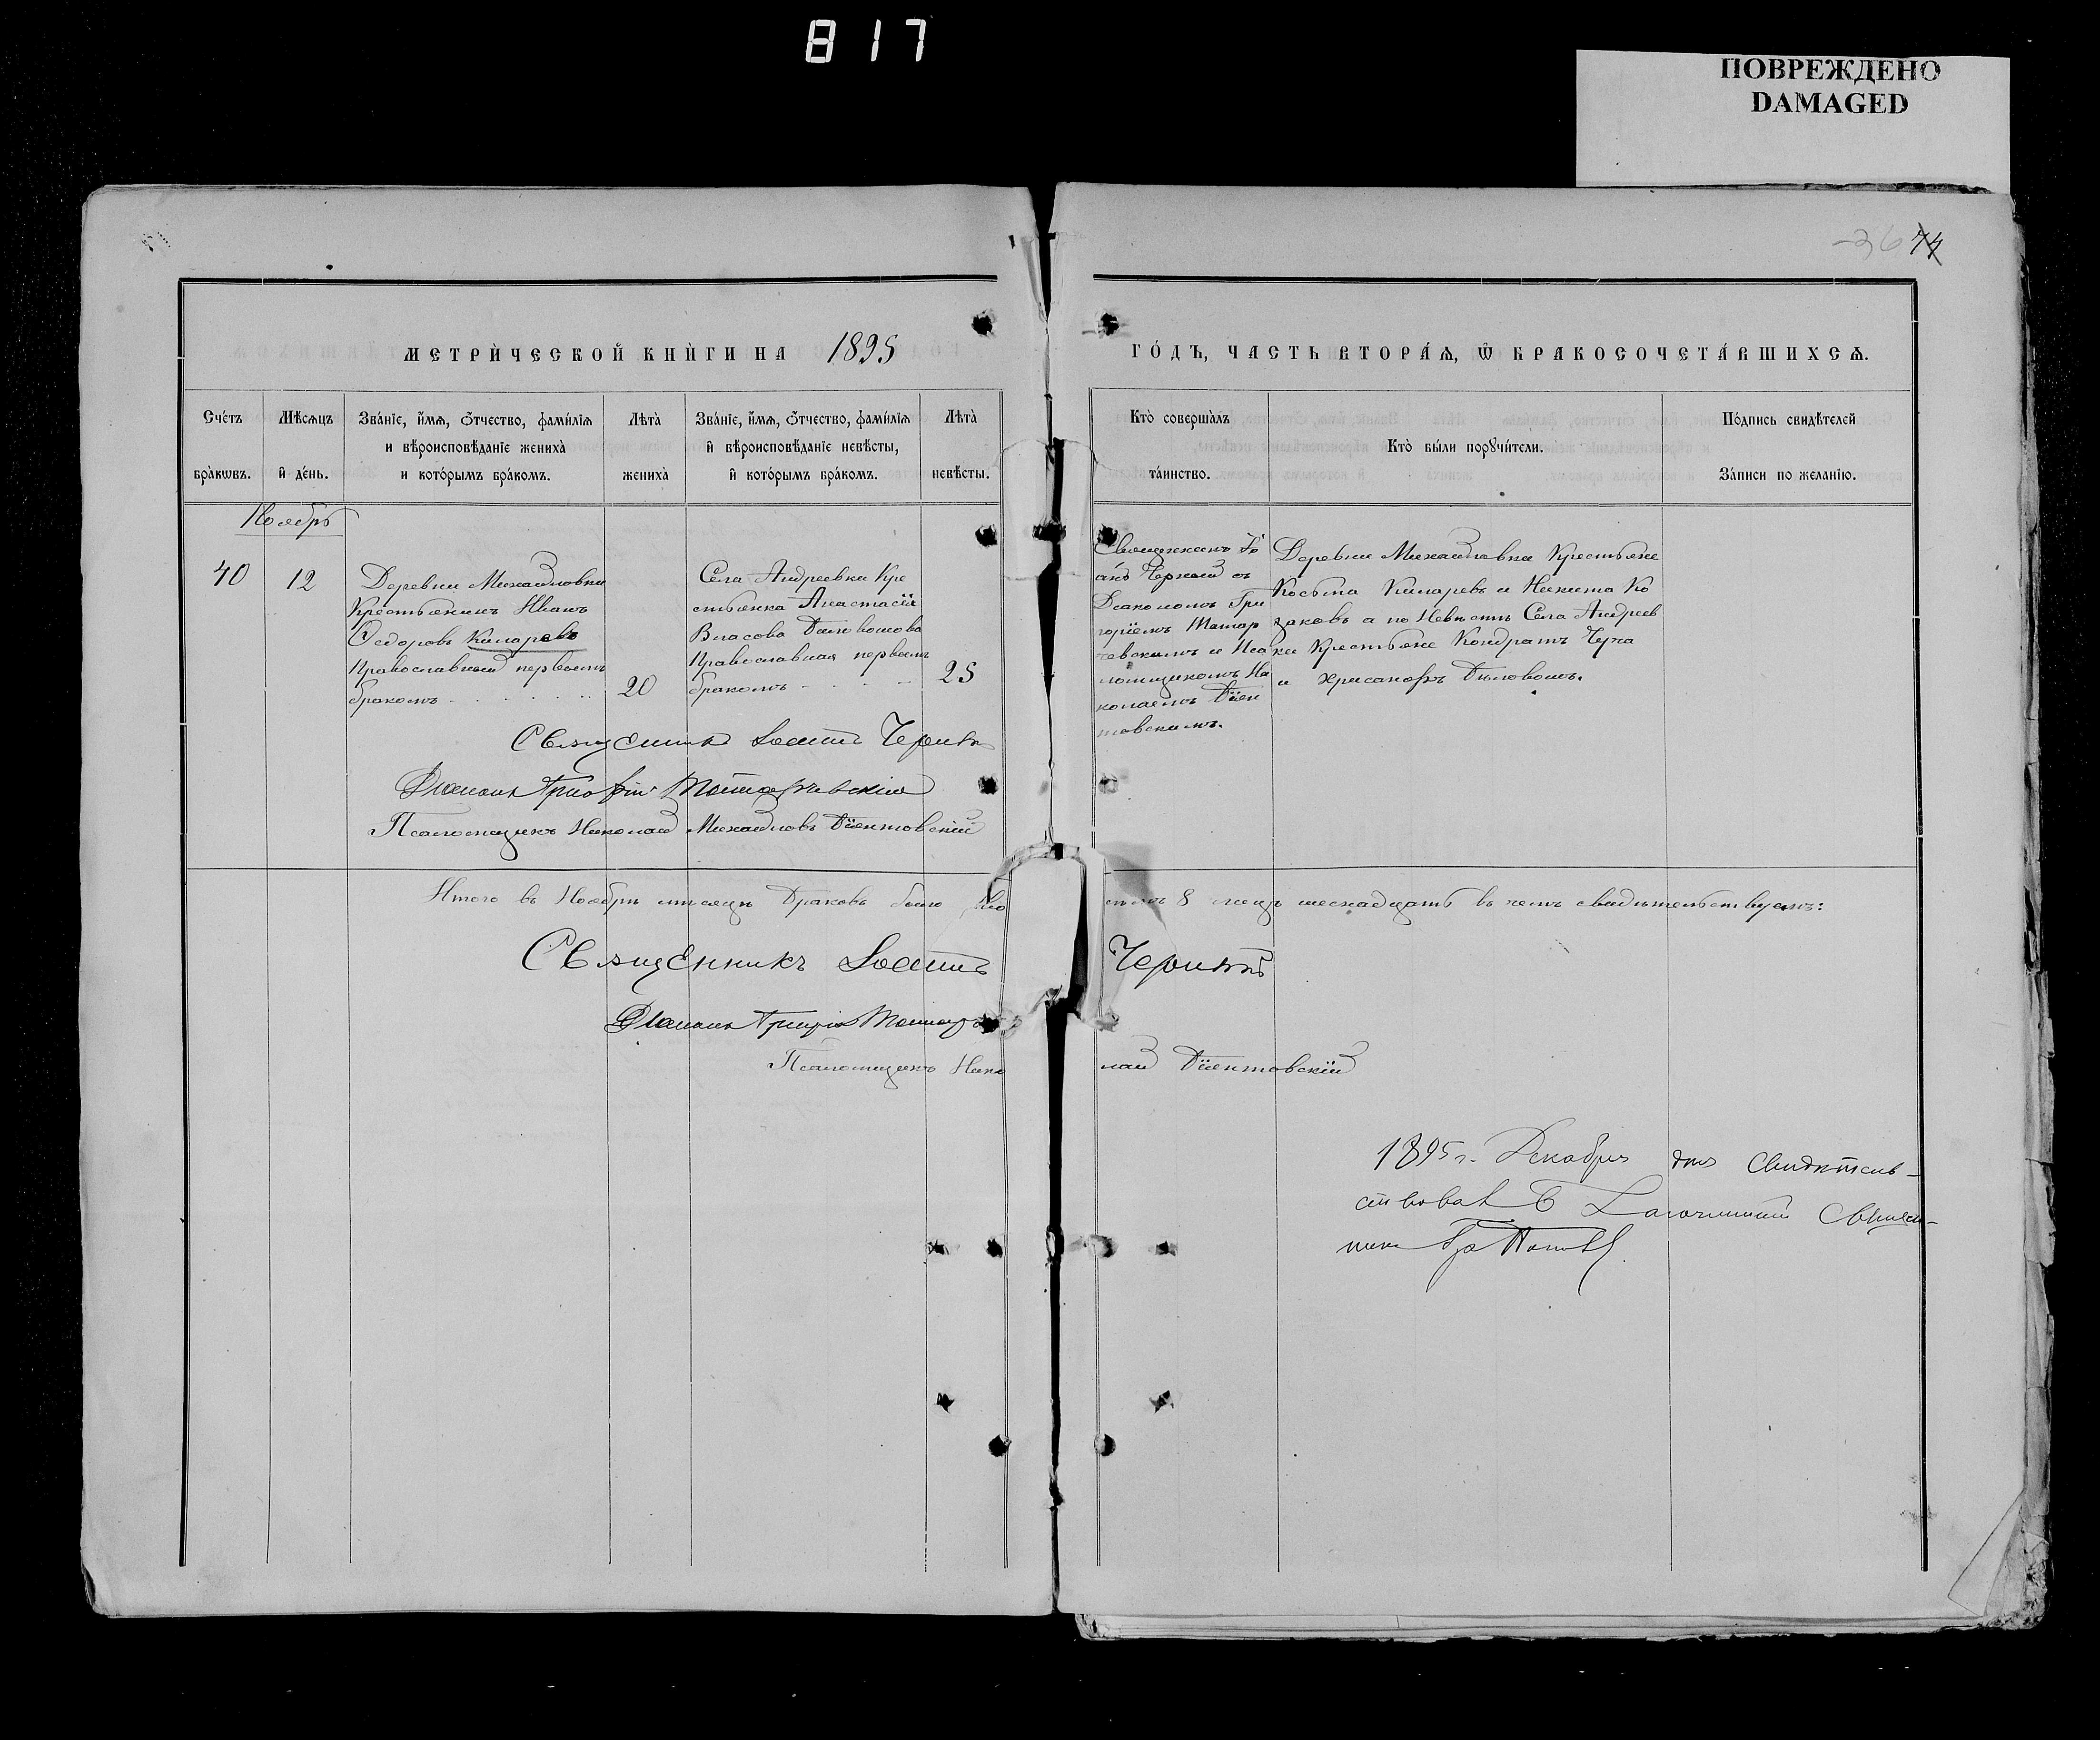 817
ПОВРЕЖДЕНО
DAMAGED
36 74
МЕТРИ́ЧЕСКОЙ КНИ́ГИ НА 1895
ГО́ДЪ, ЧАСТЬ ВТОРА́Ѧ, Ѽ БРАКОСОЧЕТА́ВШИХСѦ.
Сче́тъ бра̀кѡвъ.
Мѣ́сѧцъ и҆ де́нь.
Зва́нїе, и҆́мѧ, ѻ҆́тчество, фами́лїѧ
и вѣроисповѣ́данїе жениха̀
и кото́рымъ бра́комъ.
Лѣта̀ жениха̀
Зва́нїе, и҆́мѧ, ѻ҆́тчество, фами́лїѧ
и҆ вѣроисповѣ́данїе невѣ́сты,
и҆ кото́рымъ бра́комъ.
Лѣта̀ невѣ́сты.
Кто̀ соверша̀лъ та́инство.
Кто̀ бы́ли порꙋчи́тели.
По́дпись свидѣ́телей
За́писи по жела́нїю.
Ноябрь
40
12
Деревни Михайловки
Крестьянинъ Иванъ
Ѳедоровъ
Православный первымъ
бракомъ
20
Села Андреевки Кре
стьянка Анастасія
Власова
Православная первымъ
бракомъ
25
Священникъ Іо
анъ Черный съ
Діакономъ Гри
горіемъ Матар
чевскимъ и Пса
ломщикомъ Ни
колаемъ
товскимъ.
Деревни Михайловки Крестьяне
Косьма и Никита Ко
заковъ а по Невѣстѣ Села Андреев
ки Крестьяне Кондратъ Чуча
и Хрисанфъ
Священникъ Іоаннъ
Діаконъ Григорій
Псаломщикъ Николай Михайловъ
Итого въ Ноябрѣ мѣсяцѣ браковъ было
8 лицъ шеснадцать въ чемъ свидѣтельствуемъ:
Священникъ Іоаннъ
Діаконъ Григорій
Псаломщикъ Нико
лай
1895 г. Декабря дня Свидѣтель-
ствовалъ Благочинный Священ-
никъ